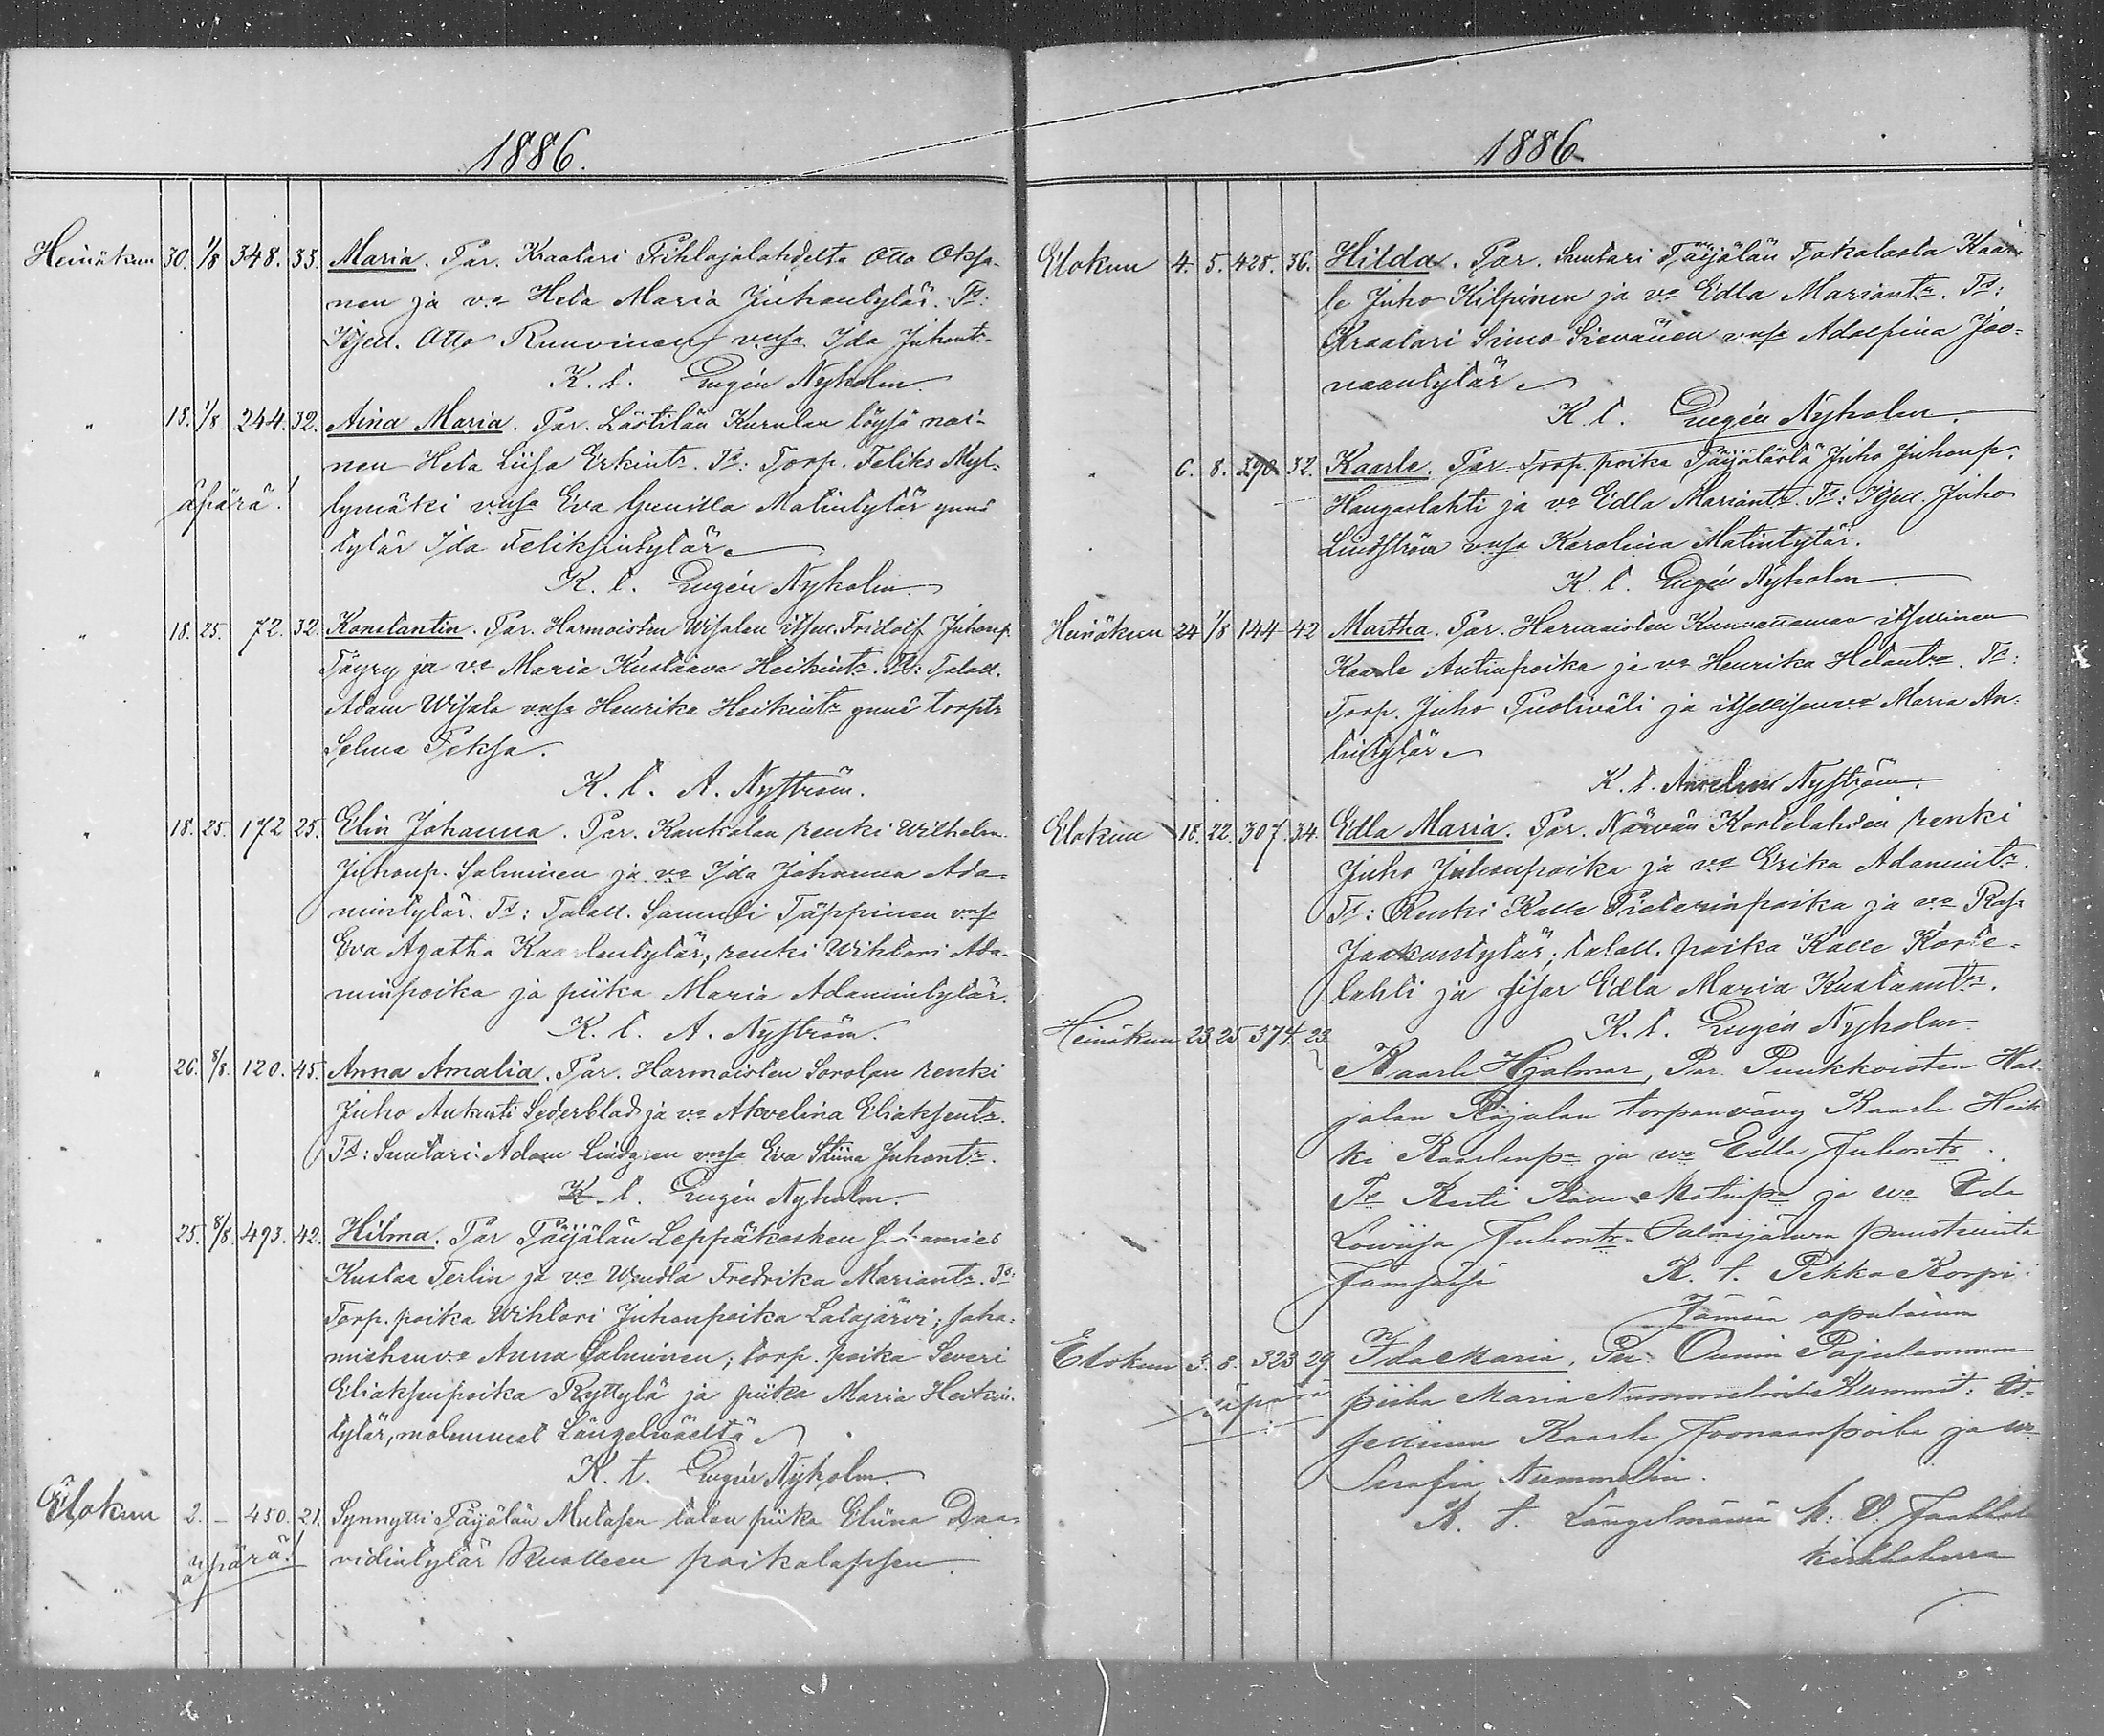 1886.
Heinäkuu 30. 1/8 348. 33. Maria. Par. Kraatari Pihlajalahdelta Otto Oksa-
nen ja vo Heta Maria Juhontytär. Td:
Itsell. Otto Ruuvinen vnsa Ida Juhontr.
K. t. Eugén Nyholm.
" 18. 1/8. 244. 32. Aina Maria. Par. Lästilän Kurulan löysä nai-
nen Heta Liisa Erkintr. Td: Torp. Feliks Myl-
äpärä! lymäki vnsa Eva Gunilla Matintytär ynnä
tytär Ida Feliksintytär
K. t. Eugén Nyholm.
" 18. 25. 72. 32. Konstantin. Par. Harmoisten Wisalan itsell. Fridolf Juhonp.
Täyry ja vo Maria Kustaava Heikintr. Td: Taloll.
Adam Wisala vnsa Henrika Heikintr ynnä torptr
Selma Peksa.
K. t. A. Nyström.
" 18. 25. 172 25. Elin Johanna. Par. Kankolan renki Wilhelm
Juhonp. Salminen ja vo Ida Johanna Ada-
mintytär. Td: Taloll. Samuli Täppinen vnsa
Eva Agatha Kaarlentytär, renki Wihtori Ada-
minpoika ja piika Maria Adamintytär.
K. t. A. Nyström.
" 26. 8/8. 120. 45. Anna Amalia. Par. Harmoisten Sorolan renki
Juho Aukusti Sederblad ja vo Akvelina Eliaksentr.
Td: Suutari Adam Lindgren vnsa Eva Stiina Juhontr.
K. t. Eugén Nyholm.
" 25. 8/8. 493. 42. Hilma. Par Päijälän Leppäkosken
Kustaa Terlin ja vo Wendla Fredrika Mariantr. Td:
Torp. poika Wihtori Juhonpoika Latajärvi; saha-
miehen vo Anna Salminen; torp. poika Severi
Eliaksenpoika Ryttylä ja piika Maria Heikin-
tytär, molemmat Längelmäeltä
K. t. Eugén Nyholm.
Elokuu 2. – 450. 21. Synnytti Päijälän Mutasen talon piika Eliina Daa-
äpärä! vidintytär kuolleen poikalapsen.
1886
Elokuu 4. 5. 428. 36. Hilda. Par. Suutari Päijälän Takalasta Kaar-
le Juho Kilpinen ja vo Edla Mariantr. Td:
Kraatari Simo Sirvänen vnsa Adolfina Joo-
naantytär
K. t. Eugén Nyholm.
" 6. 8. 390 32. Kaarle. Par. Torp. poika Päijälästä Juho Juhonp.
Hangaslahti ja vo Edla Mariantr. Td: Itsell. Juho
Lindström vnsa Karolina Matintytär.
K. t. Eugén Nyholm
Heinäkuu 24 1/8 144 42 Martha. Par. Harmoisten itsellinen
Kaarle Antinpoika ja vo Henrika Helantr. Td:
Torp. Juho Puoliväli ja itsellisen vo Maria An-
tintytär
K. t. Anselm Nyström.
Elokuu 18. 22. 307. 34. Edla Maria. Par. Närvän Kortelahden renki
Juho Juhonpoika ja vo Erika Adamintr.
Td: Renki Kalle Pieterinpoika ja vo Ras.
Jaakontytär; taloll. poika Kalle Korte-
lahti ja sisar Edla Maria Kustaantr.
K. t. Eugén Nyholm.
Heinäkuu 23 25 374 23
Kaarle Hjalmar, Par. Puukkoisten
jalan Rajalan torpan vävy Kaarle Heik-
ki Kaarlenp. ja wo Edla Juhontr.
Td Matinp. ja wo Ida
Lowiisa Juhontr. Salmijärven
Jämsässä K. t. Pekka Korpi
Jämsän apulainen
Elokuu 3. 8. 323 29 Ida Maria. Par. Ouniin Pajulammin
äpärä piika Maria Nummelin. Kummit: It-
sellinen Kaarle Joonaanpoika ja wo
Serafia Nummelin.
K. t. Längelmäessä K. V. Jaakkola
kirkkoherra